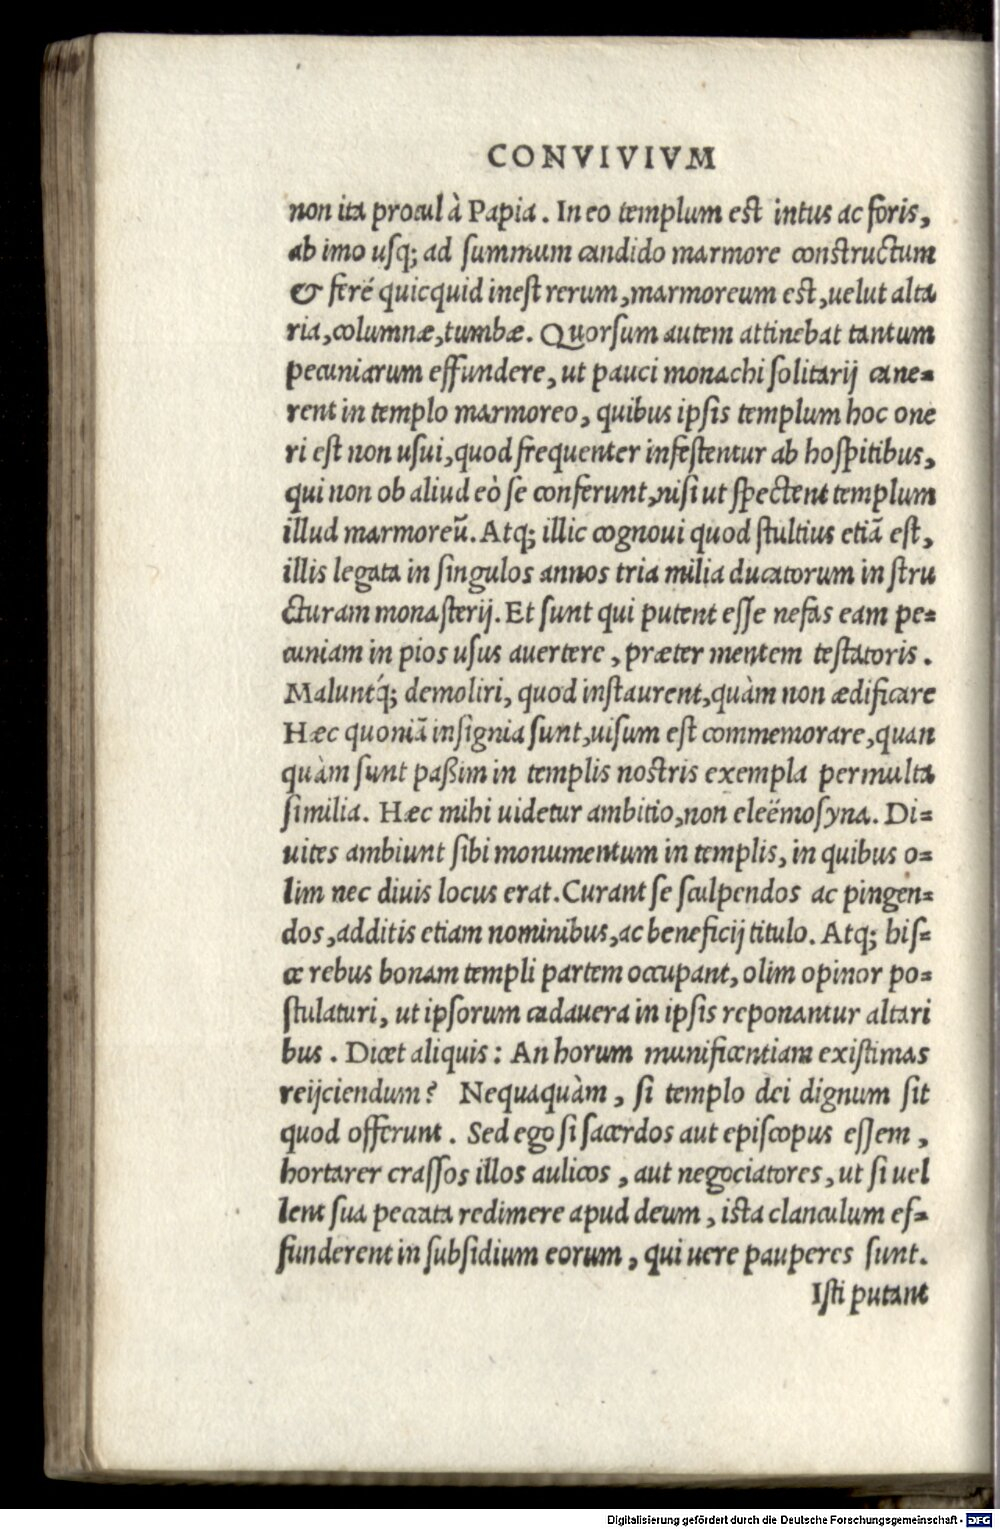 CONVIVIVM
non ita procul à Papia. In eo templum est intus ac foris,
ab imo usq; ad summum candido marmore constructum
& ferè quicquid inest rerum, marmoreum est, uelut alta
ria, columnæ, tumbæ. Quorsum autem attinebat tantum
pecuniarum effundere, ut pauci monachi solitarij cane=
rent in templo marmoreo, quibus ipsis templum hoc one
ri est non usui, quod frequenter infestentur ab hospitibus,
qui non ob aliud eò se conferunt, nisi ut spectent templum
illud marmoreũ. Atq; illic cognoui quod stultius etiã est,
illis legata in singulos annos tria milia ducatorum in stru
cturam monasterij. Et sunt qui putent esse nefas eam pe=
cuniam in pios usus auertere, præter mentem testatoris.
Malunt'q; demoliri, quod instaurent, quàm non ædificare
Hæc quoniã insignia sunt, uisum est commemorare, quan
quàm sunt paßim in templis nostris exempla permulta
similia. Hæc mihi uidetur ambitio, non eleëmosyna. Di=
uites ambiunt sibi monumentum in templis, in quibus o=
lim nec diuis locus erat. Curant se sculpendos ac pingen=
dos, additis etiam nominibus, ac beneficij titulo. Atq; his=
ce rebus bonam templi partem occupant, olim opinor po=
stulaturi, ut ipsorum cadauera in ipsis reponantur altari
bus. Dicet aliquis: An horum munificentiam existimas
reijciendum? Nequaquàm, si templo dei dignum sit
quod offerunt. Sed ego si sacerdos aut episcopus essem,
hortarer crassos illos aulicos, aut negociatores, ut si uel
lent sua peccata redimere apud deum, ista clanculum ef=
funderent in subsidium eorum, qui uere pauperes sunt.
Isti putant
Digitalisierung gefördert durch die Deutsche Forschungsgemeinschaft - DFG